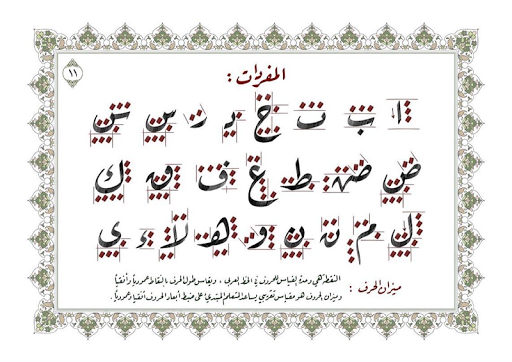 ١١
المفردات :
ا ب ت ج د ر س ش
ص ض ط ع ف ق ك
ل م ن ن و ه لا ء ي
ميزان الحرف :
النقطة هي وحدة لقياس الحروف في الخط العربي ، ويقاس طول الحرف بالنقاط عمودياً وأفقياً
وميزان الحروف هو مقياس تقريبي يساعد المتعلم المبتدئ على ضبط أبعاد الحروف أفقياً وعمودياً .